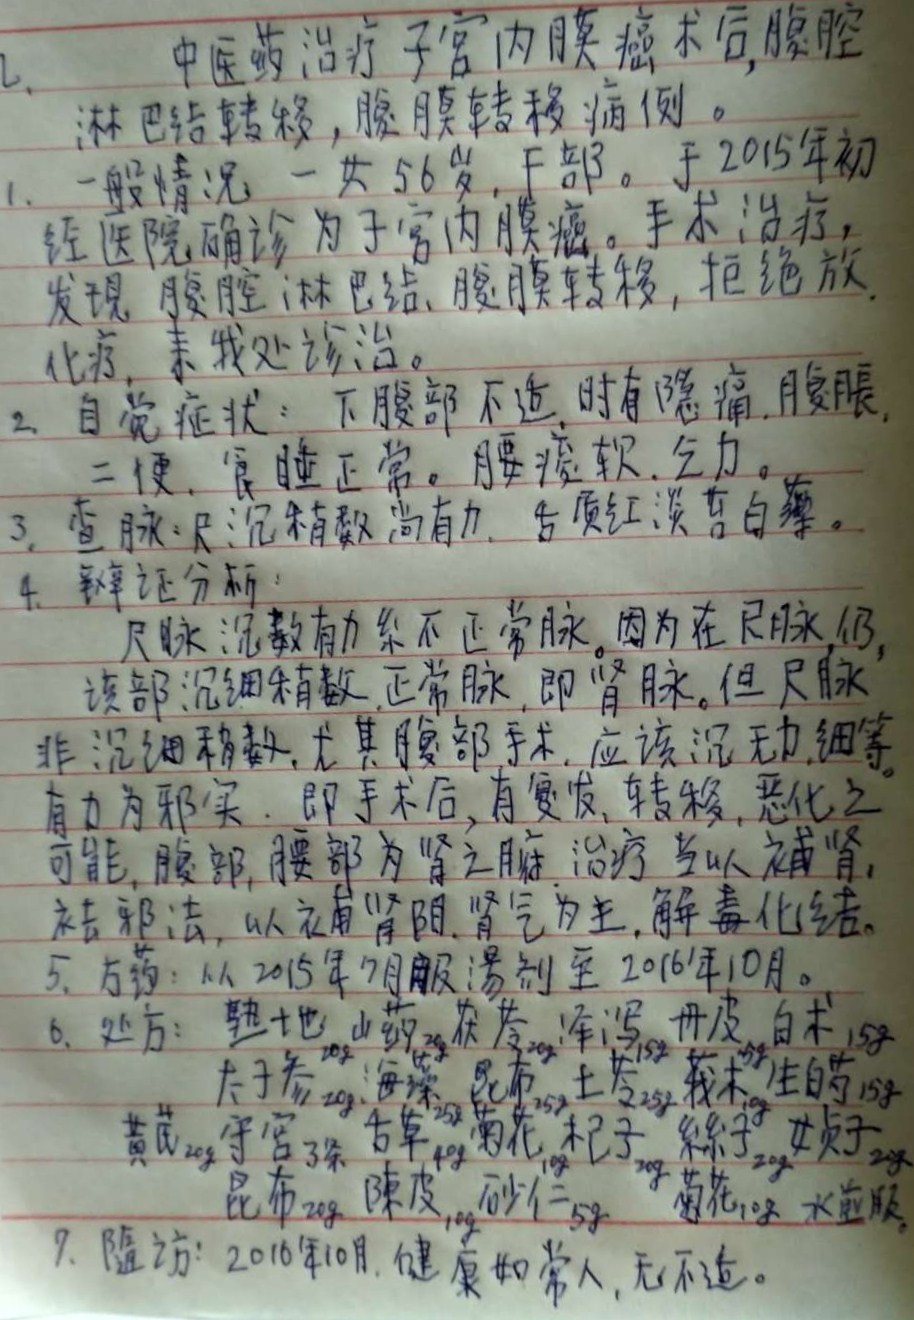 2. 中医药治疗子宫内膜癌术后,腹腔
淋巴结转移,腹膜转移病例。
1. 一般情况 一女 56岁,干部。于2015年初
经医院确诊为子宫内膜癌。手术治疗,
发现腹腔淋巴结、腹膜转移,拒绝放.
化疗,来我处诊治。
2. 自觉症状:下腹部不适,时有隐痛.腹脹,
二便,食睡正常。腰痠软.乏力。
3. 查脉:尺沉稍数尚有力.舌质红淡苔白薄。
4. 辩证分析:
尺脉沉数有力系不正常脉。因为在尺脉,仍,
该部沉细稍数,正常脉,即肾脉。但尺脉
非沉细稍数.尤其腹部手术.应该沉无力.细等。
有力为邪实.即手术后,有复发,转移,恶化之
可能,腹部,腰部为肾之府 治疗当以補肾,
祛邪法,以補肾阴.肾气为主,解毒化结。
5. 方药:从2015年7月服湯剂至2016年10月。
6. 处方:熟地20g 山药20g 茯苓20g 泽泻15g 丹皮15g 白术15g
太子参20g 海藻25g 昆布25g 土苓25g 莪术10g 生白芍15g
黄芪20g 守宫3条 舌草40g 菊花10g 杞子20g 絲子20g 女贞子20g
昆布20g 陳皮10g 砂仁5g 菊花10g 水煎服。
7. 随访:2016年10月.健康如常人,无不适。